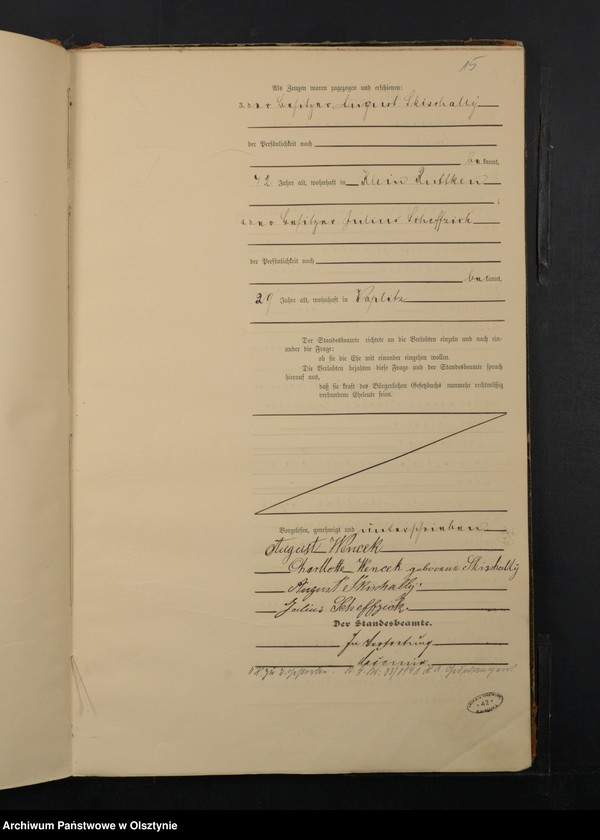 15
Als Zeugen waren zugezogen und erschienen:
3. der Besitzer August Skischally
der Persönlichkeit nach
bekannt,
42 Jahre alt, wohnhaft in Klein Ruttken
;
4. der Besitzer Julius Scheffzick
der Persönlichkeit nach
bekannt,
29 Jahre alt, wohnhaft in Waplitz
Der Standesbeamte richtete an die Verlobten einzeln und nach ein-
ander die Frage:
ob sie die Ehe mit einander eingehen wollen.
Die Verlobten bejahten diese Frage und der Standesbeamte sprach
hierauf aus,
daß sie kraft des Bürgerlichen Gesetzbuchs nunmehr rechtmäßig
verbundene Eheleute seien.
Vorgelesen, genehmigt und unterschrieben
August Wencek
Charlotte Wencek geborene Skischally
August Skischally
Julius Scheffzick
Der Standesbeamte.
In Vertretung
42
Archiwum Państwowe w Olsztynie